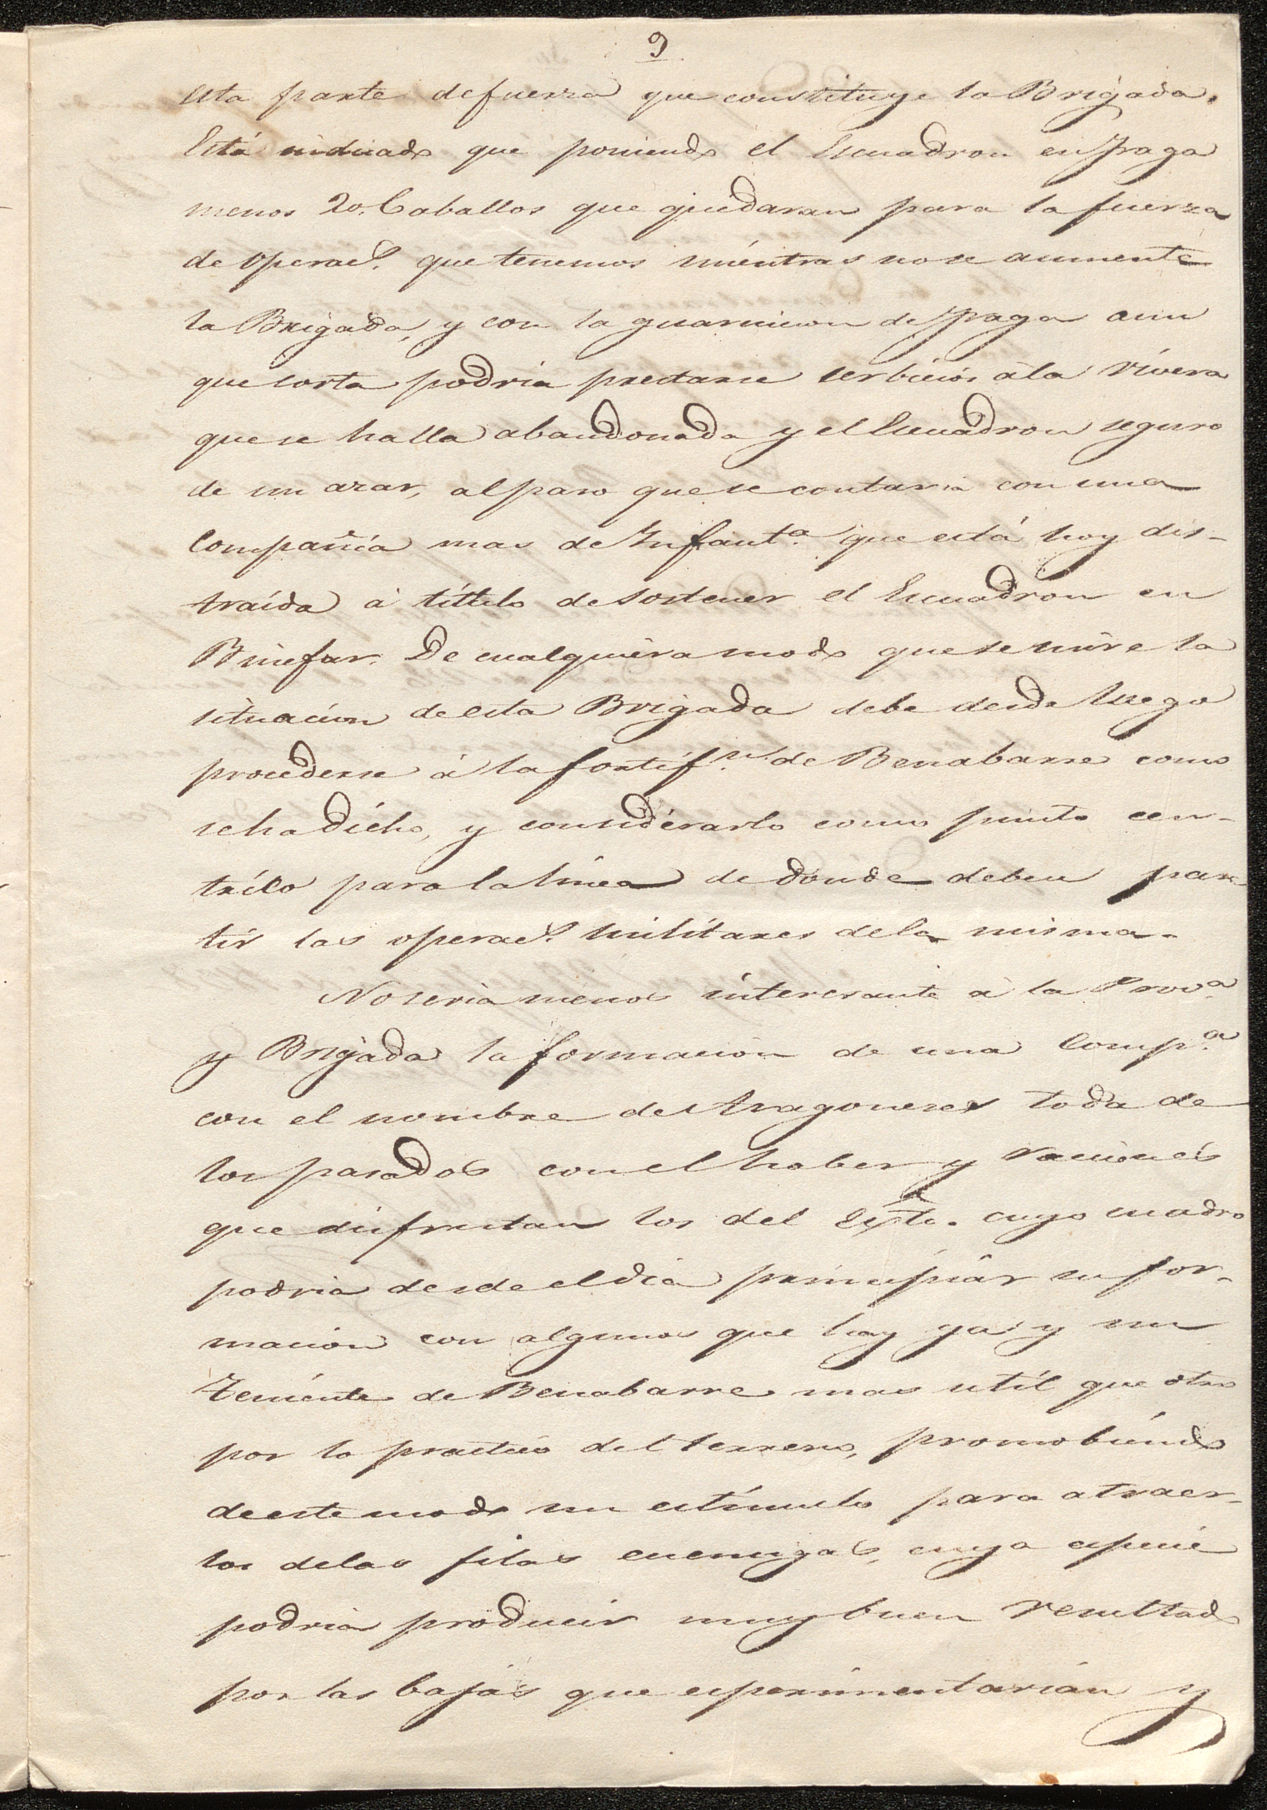 9
esta parte de fuerza que constituye la Brigada.
Está indicado que poniendo el Escuadron en Fraga
menos 20. Caballos que quedaran para la fuerza
de operac.s que tenemos miéntras no se aumente
la Brigada, y con la guarnicion de Fraga aun
que corta podria prestarse serbicios à la rívera
que se halla abandonada y el Escuadron seguro
de un azar, al paso que se contaria con una
Compañía mas de Infant.a que está hoy dis-
traída à títtulo de sostener el Escuadron en
Binefar. De cualquiera modo que se mire la
situacion de esta Brigada debe desde luego
procederse à la fortif.n de Benabarre como
se ha dícho, y considérarlo como punto cen-
tríco para la línea de dónde deben par-
tir las operac.s militares de la misma.
No seria menos interesante à la Prov.a
y Brigada la formacion de una Comp.a
con el nombre de Aragoneses toda de
los pasados con el haber y raciones
que disfrutan los del Exto. cuyo cuadro
podria desde el dia principiar su for-
macion con algunos que hay ya y un
Teniénte de Benabarre mas util que otro
por lo practico del terreno, promobiéndo
de este modo un estímulo para atraer-
los de las filas enemigas, cuya especie
podria producir muy buen resultado
por las bajas que esperimentarian y